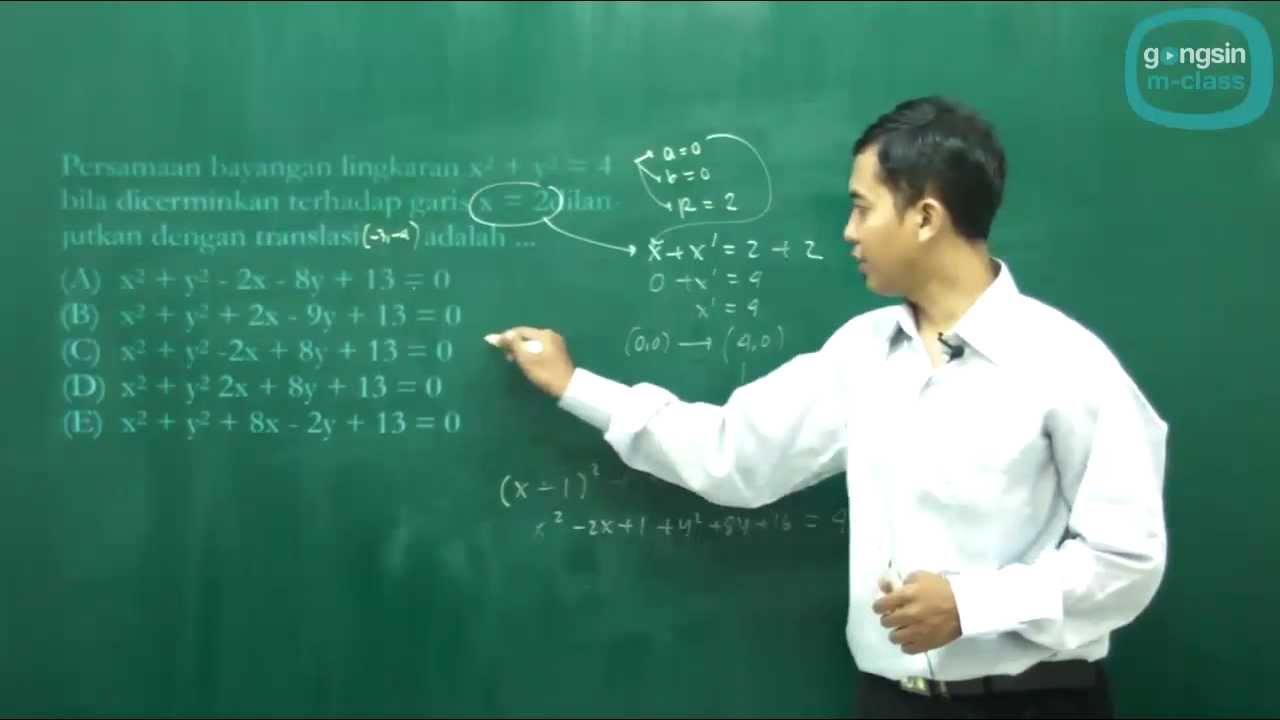 gongsin
m-class
Persamaan bayangan lingkaran x² + y² = 4
bila dicerminkan terhadap garis x = 2 dilan-
jutkan dengan translasi (-3,-4) adalah ...
(A) x² + y² - 2x - 8y + 13 = 0
(B) x² + y² + 2x - 9y + 13 = 0
(C) x² + y² -2x + 8y + 13 = 0
(D) x² + y² 2x + 8y + 13 = 0
(E) x² + y² + 8x - 2y + 13 = 0
a = 0
b = 0
R = 2
x + x' = 2 + 2
0 + x' = 4
x' = 4
(0,0) → (4,0)
(x - 1)² +
x² - 2x + 1 + y² + 8y + 16 = 4